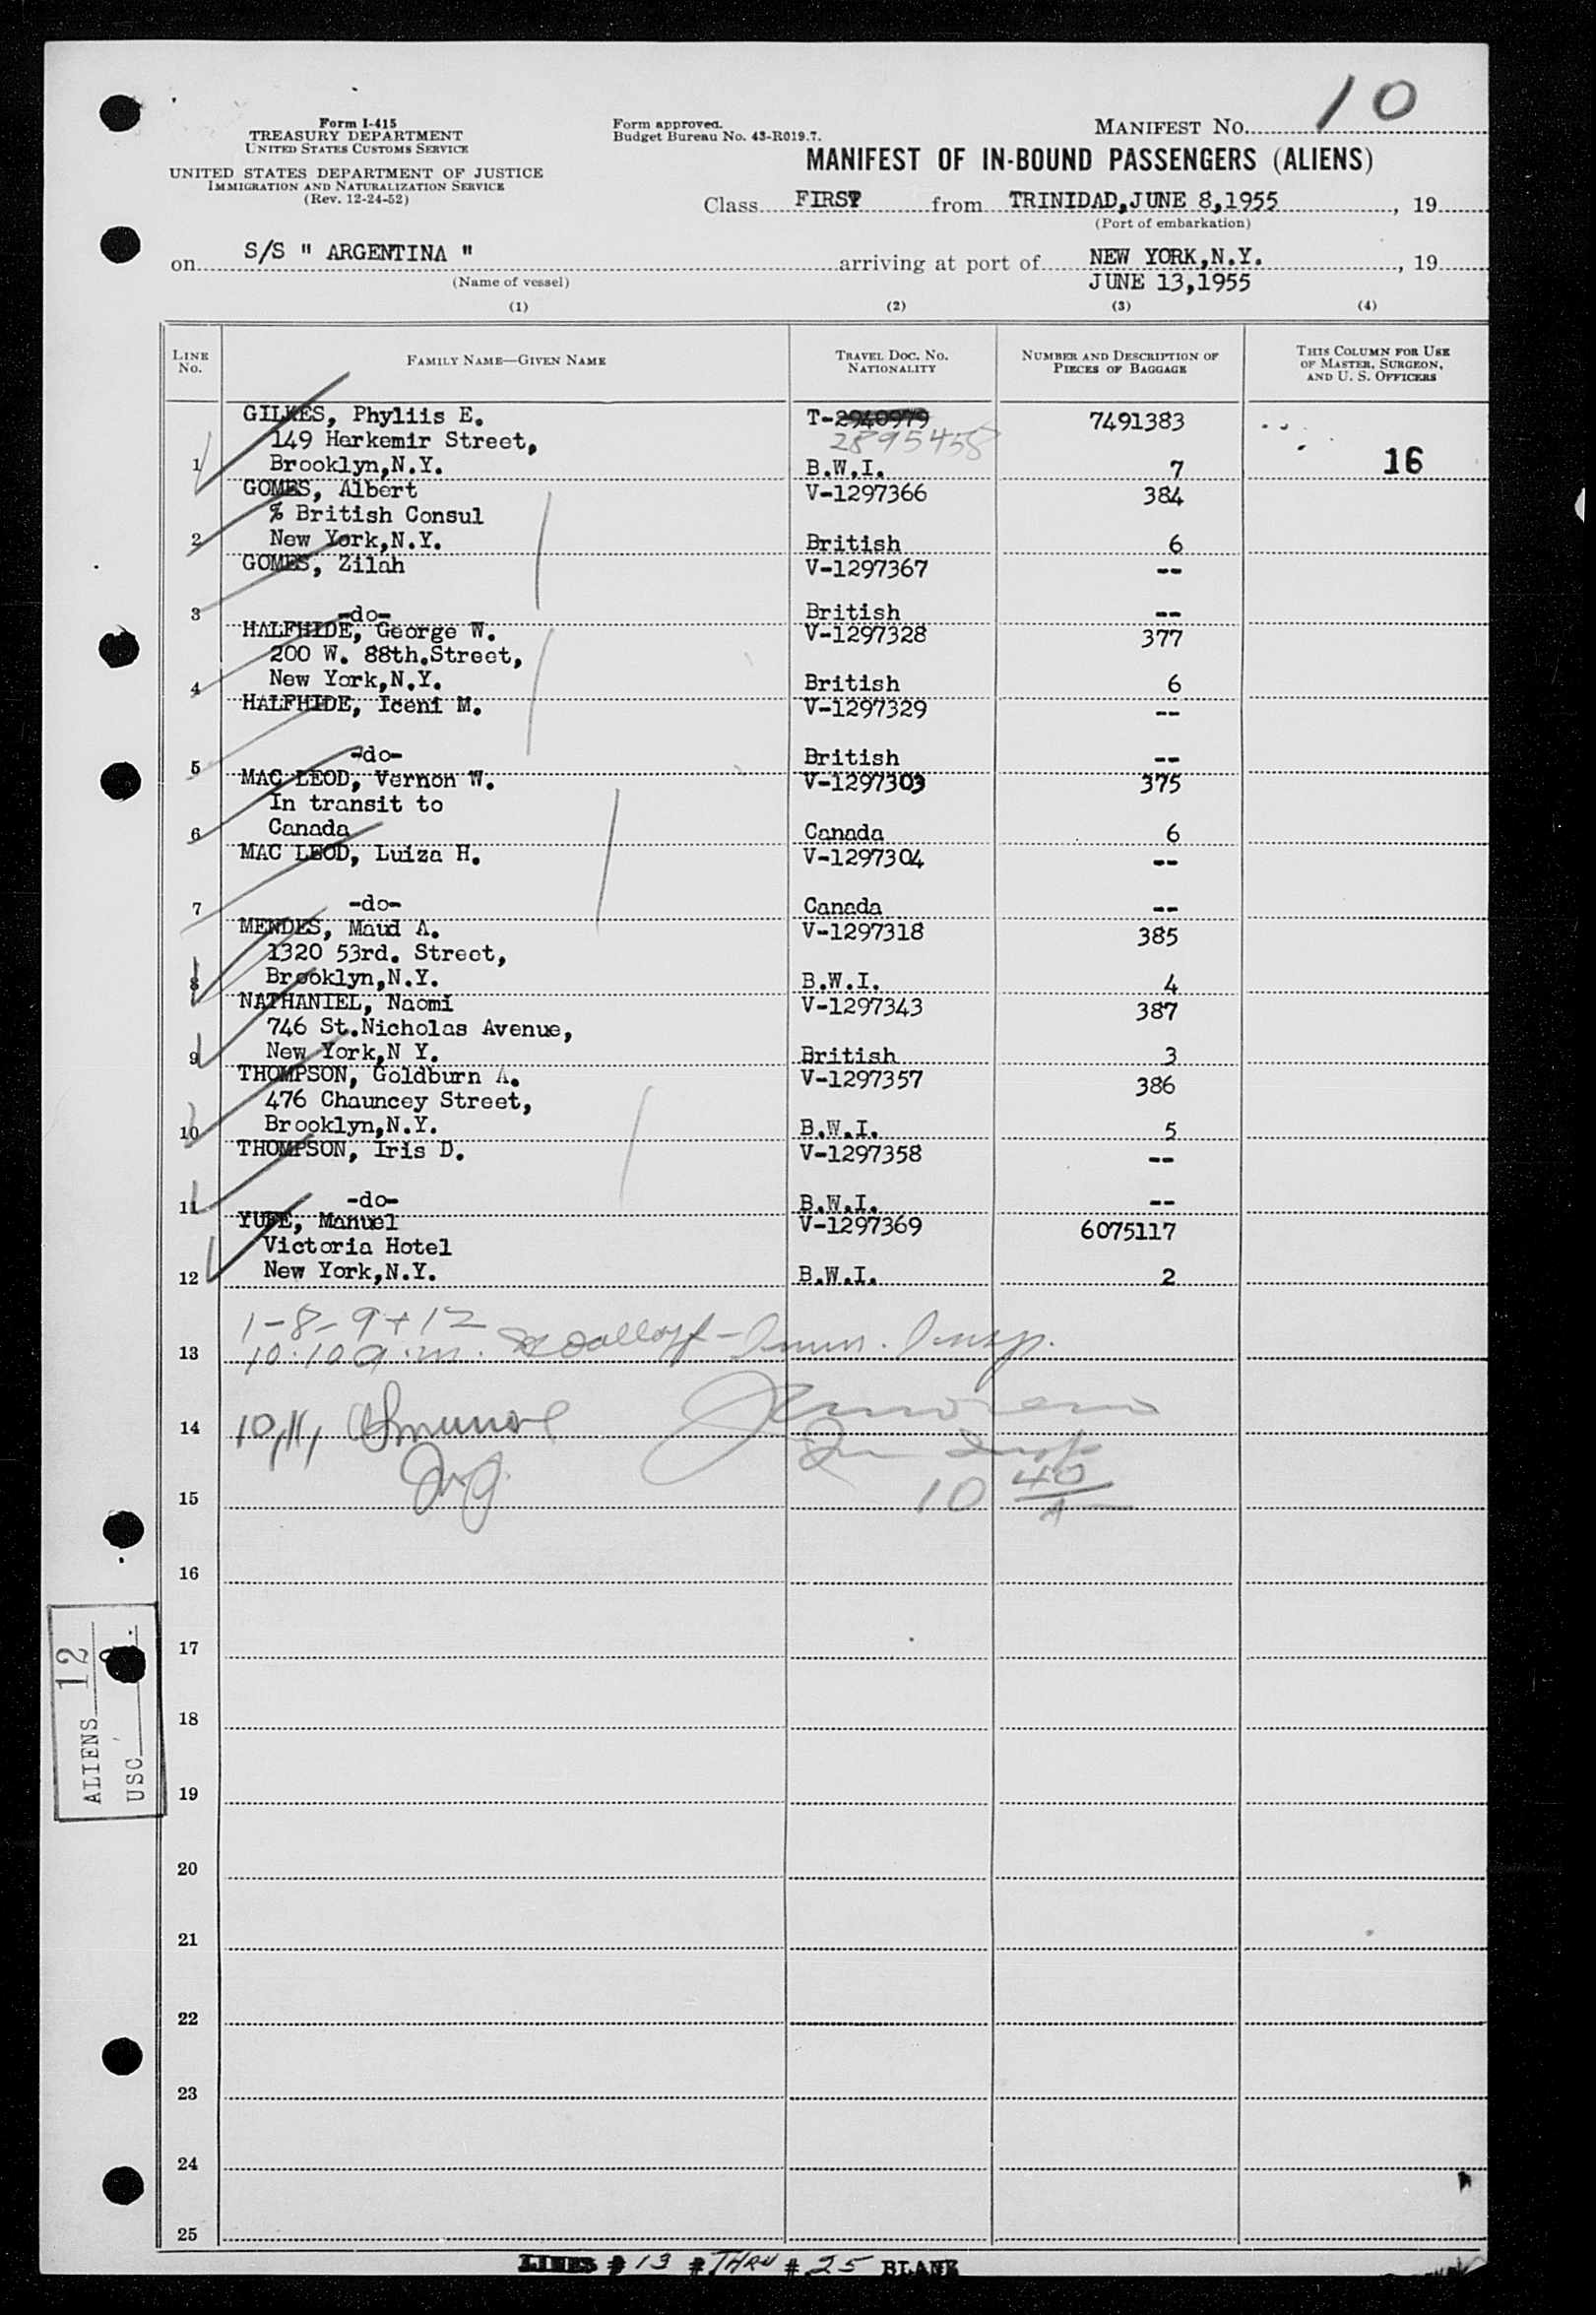 10
Form I-415
TREASURY DEPARTMENT
UNITED STATES CUSTOMS SERVICE
UNITED STATES DEPARTMENT OF JUSTICE
IMMIGRATION AND NATURALIZATION SERVICE
(Rev. 12-24-52)
Form approved.
Budget Bureau No. 43-R019.7.
MANIFEST No.
MANIFEST OF IN-BOUND PASSENGERS (ALIENS)
Class FIRST from TRINIDAD,JUNE 8,1955, 19
(Port of embarkation)
on S/S " ARGENTINA " arriving at port of NEW YORK,N.Y., 19
(Name of vessel) JUNE 13,1955
(1) (2) (3) (4)
LINE No. FAMILY NAME—GIVEN NAME TRAVEL DOC. No. NATIONALITY NUMBER AND DESCRIPTION OF PIECES OF BAGGAGE THIS COLUMN FOR USE OF MASTER, SURGEON, AND U. S. OFFICERS
GILKES, Phyllis E. T-2940979 7491383
149 Herkemir Street, 2895458
1 Brooklyn,N.Y. B.W.I. 7 16
GOMES, Albert V-1297366 384
% British Consul
2 New York,N.Y. British 6
GOMES, Zilah V-1297367 --
3 -do- British --
HALFHIDE, George W. V-1297328 377
200 W. 88th.Street,
4 New York,N.Y. British 6
HALFHIDE, Iceni M. V-1297329 --
5 -do- British --
MAC LEOD, Vernon W. V-1297303 375
In transit to
6 Canada Canada 6
MAC LEOD, Luiza H. V-1297304 --
7 -do- Canada --
MENDES, Maud A. V-1297318 385
1320 53rd. Street,
8 Brooklyn,N.Y. B.W.I. 4
NATHANIEL, Naomi V-1297343 387
746 St.Nicholas Avenue,
9 New York,N Y. British 3
THOMPSON, Goldburn A. V-1297357 386
476 Chauncey Street,
10 Brooklyn,N.Y. B.W.I. 5
THOMPSON, Iris D. V-1297358 --
11 -do- B.W.I. --
YUFE, Manuel V-1297369 6075117
Victoria Hotel
12 New York,N.Y. B.W.I. 2
1-8-9+12
13 10:10 a.m. Imm. Insp.
14 10,11,
15 10 40/A
16
17
18
19
20
21
22
23
24
25
ALIENS 12
USC
LINES # 13 # THRU # 25 BLANK